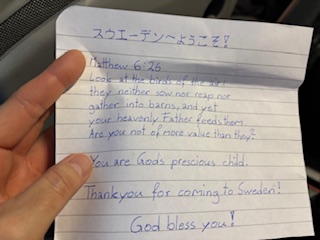 スウエーデンへようこそ!
Matthew 6:26
Look at the birds of the air:
they neither sow nor reap nor
gather into barns, and yet
your heavenly Father feeds them.
Are you not of more value than they?
You are God's prescious child.
Thankyou for coming to Sweden!
God bless you!